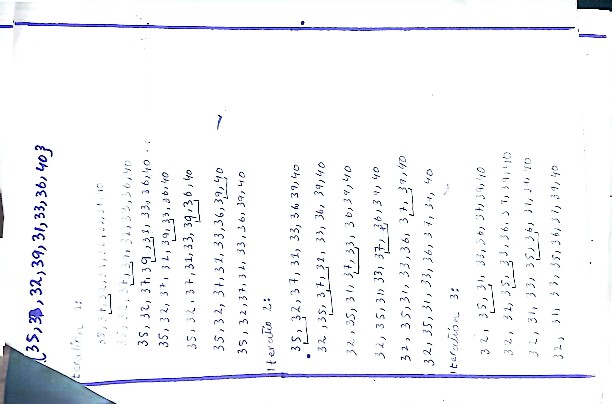 {35, 37, 32, 39, 31, 33, 36, 40}
35, 32, 37, 39, 31, 33, 36, 40
35, 32, 37, 31, 39, 33, 36, 40
35, 32, 37, 31, 33, 39, 36, 40
35, 32, 37, 31, 33, 36, 39, 40
35, 32, 37, 31, 33, 36, 39, 40
Iteratio 2:
35, 32, 37, 31, 33, 36 39, 40
32, 35, 37, 31, 33, 36, 39, 40
32, 35, 31, 37, 33, 36, 39, 40
32, 35, 31, 33, 37, 36, 39, 40
32, 35, 31, 33, 36, 37, 39, 40
32, 35, 31, 33, 36, 37, 39, 40
Iteration 3:
32, 35, 31, 33, 36, 37, 39, 40
32, 31, 35, 33, 36, 37, 39, 40
32, 31, 33, 35, 36, 37, 39, 40
32, 31, 33, 35, 36, 37, 39, 40